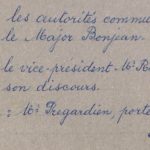 les autorités commu
le Major Bonjean.
le vice-président Mr R
son discours.
: Mr Pregardien, porte